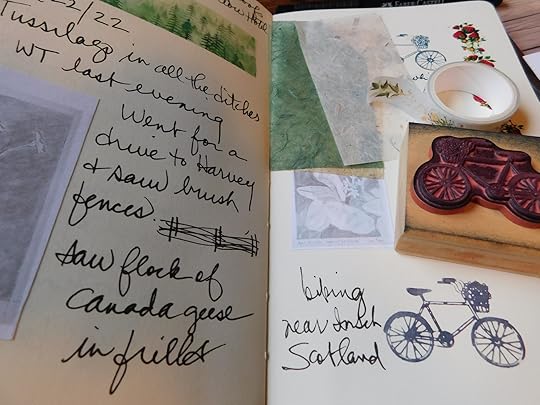 2/22
Tussilago in all the ditches
WT last evening
Went for a
drive to Harvey
& saw brush
fences
saw flock of
Canada geese
in field
biking
near Insch
Scotland
FABER-CASTELL